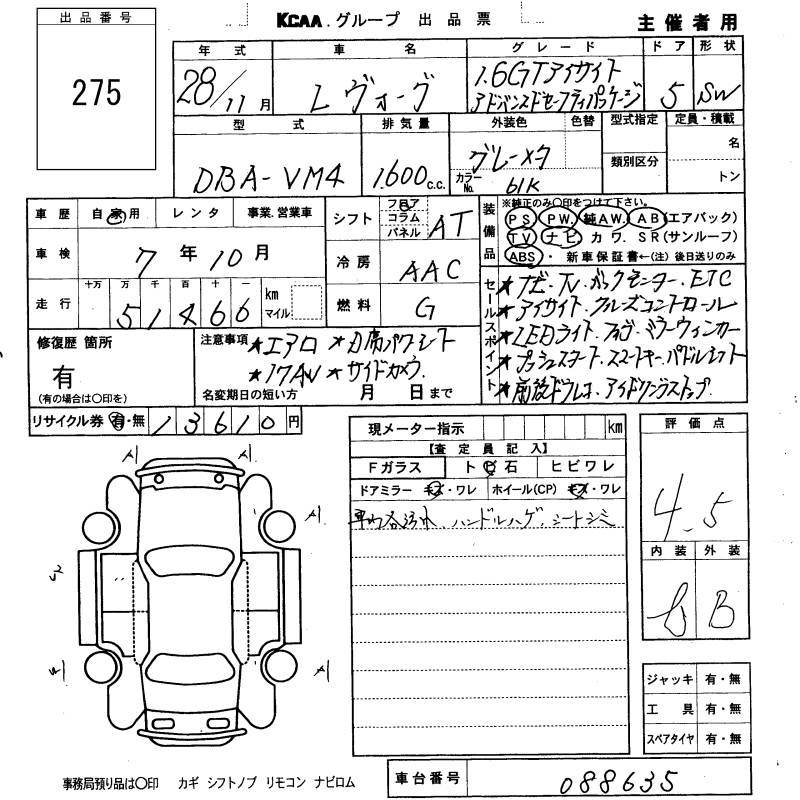 出品番号
275
KCAA.グループ 出品票
主催者用
年式 車名 グレード ドア 形状
28/11月 レヴォーグ 1.6GTアイサイト
アドバンスドセーフティパッケージ 5 SW
型式 排気量 外装色 色替 型式指定 定員・積載
DBA-VM4 1,600c.c. グレーメタ 名
類別区分
カラーNo. 61K トン
車歴 自家用 レンタ 事業.営業車
シフト フロア コラム パネル AT
車検 7年10月
冷房 AAC
走行 十万 万 千 百 十 一 km マイル
51466
燃料 G
装備品 ※純正のみ〇印をつけて下さい。
PS PW. 純AW. AB(エアバック)
TV ナビ カワ. SR(サンルーフ)
ABS・新車保証書←(注)後日送りのみ
セールスポイント
★ナビ・TV・バックモニター・ETC
★アイサイト・クルーズコントロール
★LEDライト・フォグ・ミラーウィンカー
★プッシュスタート・スマートキー・パドルシフト
★前後ドラレコ・アイドリングストップ
修復歴 箇所
有
(有の場合は〇印を)
注意事項 ★エアロ ★D席パワーシート
★17AW ★サイドカメラ
名変期日の短い方 月 日まで
リサイクル券 有・無 13610円
現メーター指示 km
【査定員記入】
Fガラス トビ石 ヒビワレ
ドアミラー キズ・ワレ ホイール(CP) キズ・ワレ
車内各汚れ、ハンドルハゲ、シートシミ
評価点
4.5
内装 外装
B
A1 A1
A1
A1
ジャッキ 有・無
工具 有・無
スペアタイヤ 有・無
事務局預り品は〇印 カギ シフトノブ リモコン ナビロム
車台番号 088635